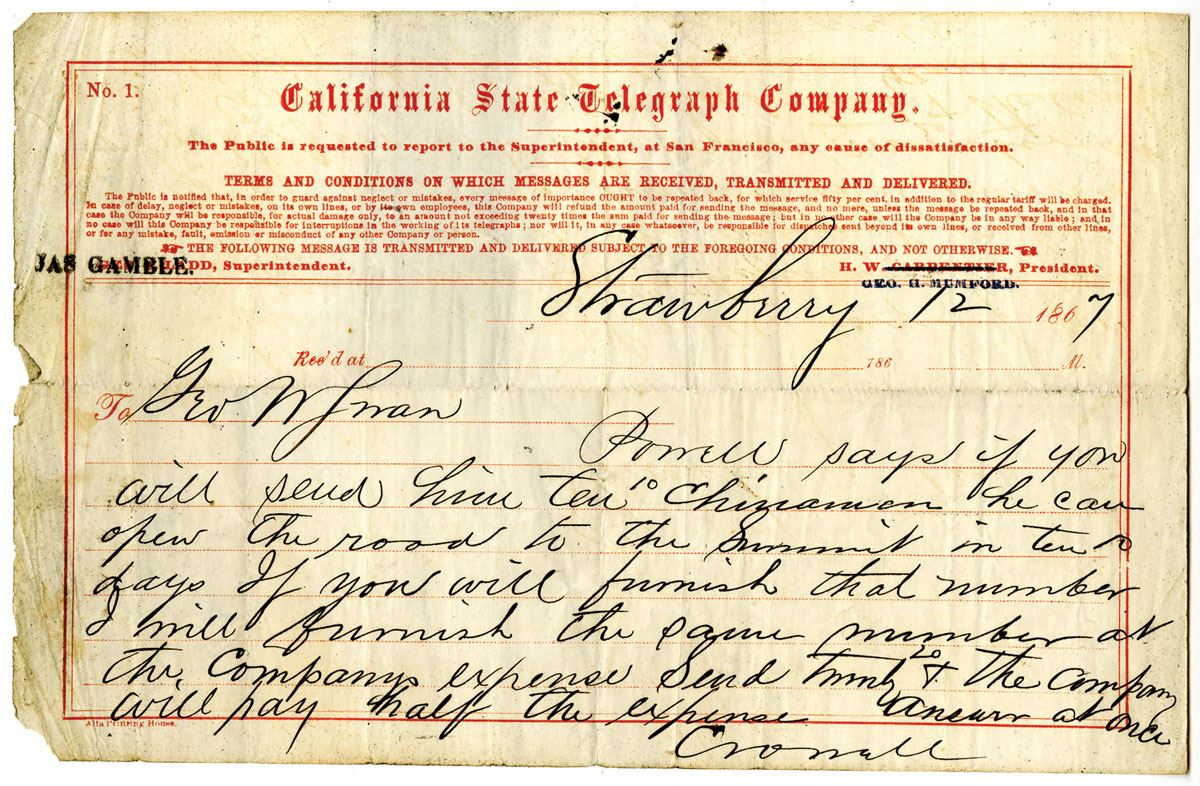 No. 1.
California State Telegraph Company.
The Public is requested to report to the Superintendent, at San Francisco, any cause of dissatisfaction.
TERMS AND CONDITIONS ON WHICH MESSAGES ARE RECEIVED, TRANSMITTED AND DELIVERED.
The Public is notified that, in order to guard against neglect or mistakes, every message of importance OUGHT to be repeated back, for which service fifty per cent. in addition to the regular tariff will be charged.
In case of delay, neglect or mistakes, on its own lines, or by its own employees, this Company will refund the amount paid for sending the message, and no more, unless the message be repeated back, and in that
case the Company will be responsible, for actual damage only, to an amount not exceeding twenty times the sum paid for sending the message; but in no other case will the Company be in any way liable; and, in
no case will this Company be responsible for interruptions in the working of its telegraphs; nor will it, in any case whatsoever, be responsible for dispatches sent beyond its own lines, or received from other lines,
or for any mistake, fault, emission or misconduct of any other Company or person.
THE FOLLOWING MESSAGE IS TRANSMITTED AND DELIVERED SUBJECT TO THE FOREGOING CONDITIONS, AND NOT OTHERWISE.
JAS GAMBLE. Superintendent.
H. W. CARPENTIER, President.
GEO. H. MUMFORD.
Strawberry 12 1867
Rec'd at 186 M.
To Geo W
Powell says if you
will send him ten 10 Chinamen he can
open the road to the Summit in ten 10
days If you will furnish that number
I will furnish the same number at
the Companys expense Send 20 & the company
will pay half the expense Answer at once
Alta Printing House.